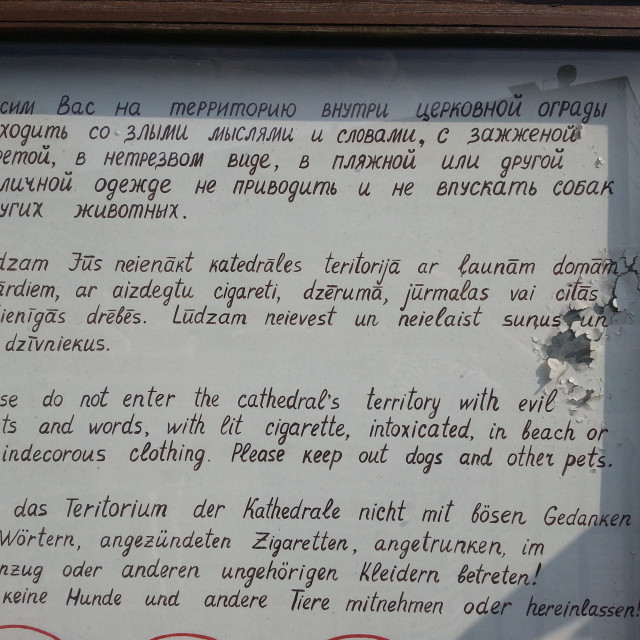 сим Вас на территорию внутри церковной ограды
ходить со злыми мыслями и словами, с зажженой
етой, в нетрезвом виде, в пляжной или другой
личной одежде не приводить и не впускать собак
угих животных.
dzam Jūs neienākt katedrāles teritorijā ar ļaunām domām
ārdiem, ar aizdegtu cigareti, dzērumā, jūrmalas vai citās
ienīgās drēbēs. Lūdzam neievest un neielaist suņus un
dzīvniekus.
se do not enter the cathedral's territory with evil
ts and words, with lit cigarette, intoxicated, in beach or
indecorous clothing. Please keep out dogs and other pets.
das Teritorium der Kathedrale nicht mit bösen Gedanken
Wörtern, angezündeten Zigaretten, angetrunken, im
nzug oder anderen ungehörigen Kleidern betreten!
keine Hunde und andere Tiere mitnehmen oder hereinlassen!